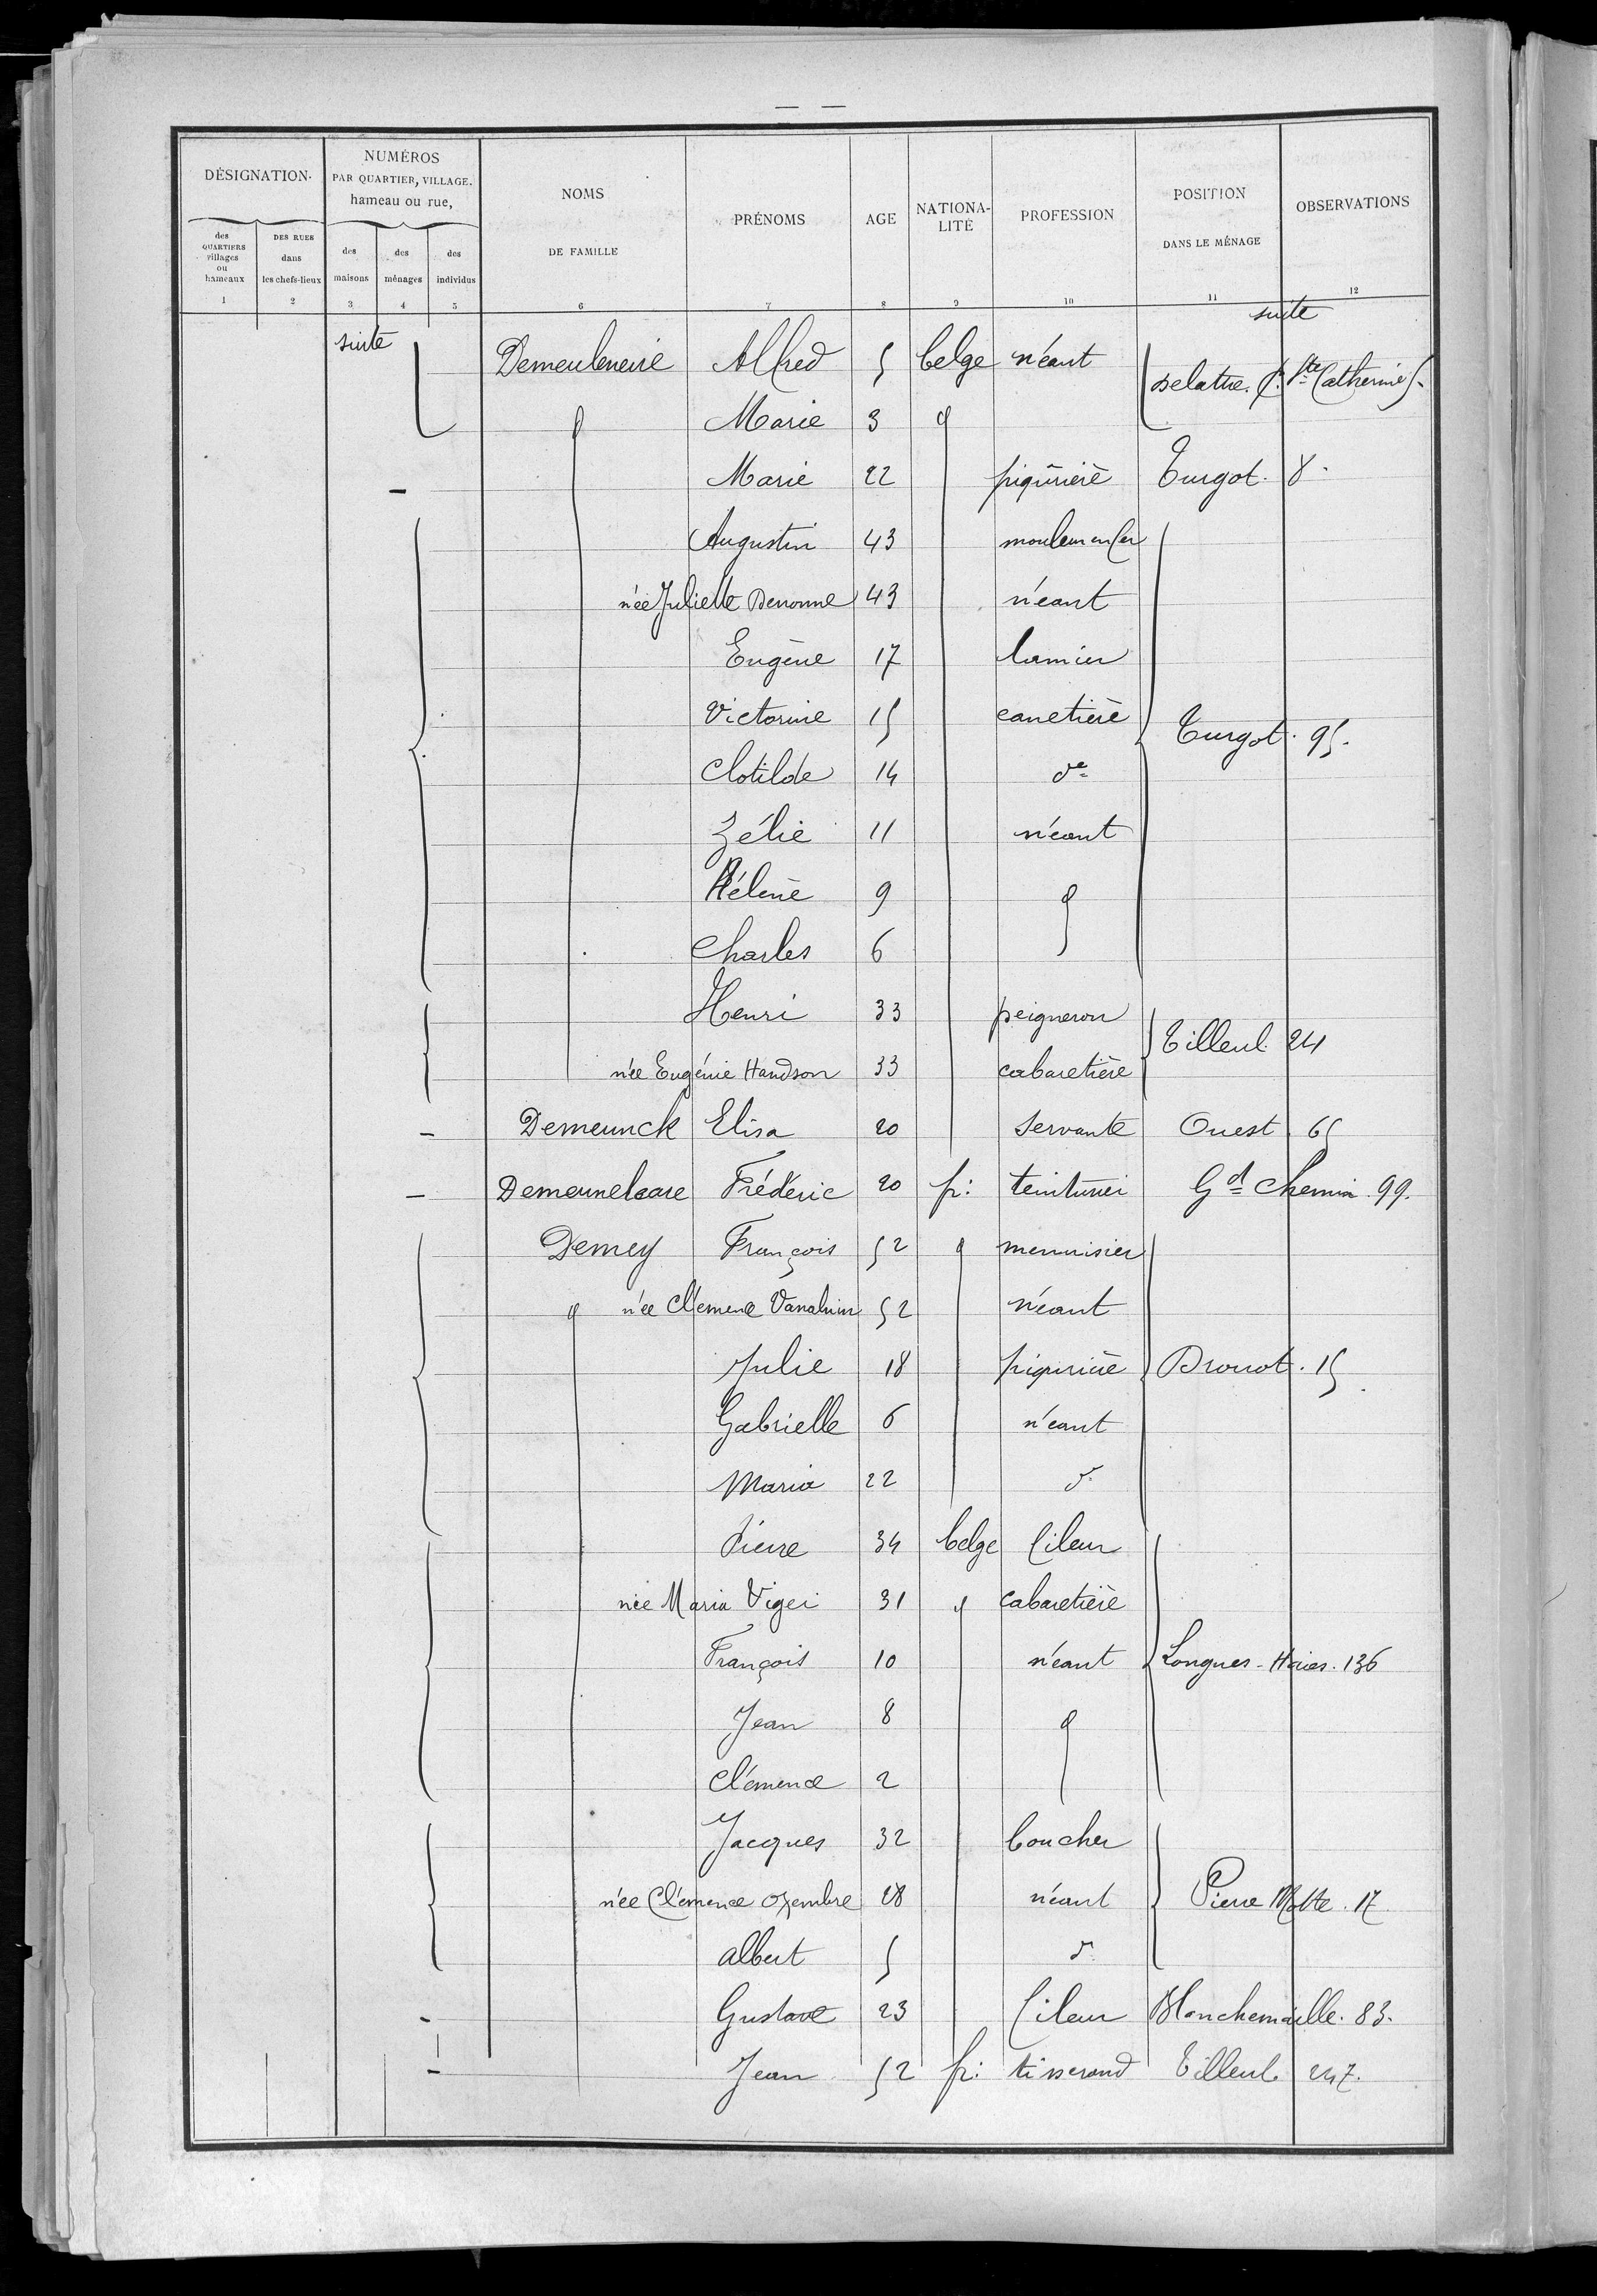 DÉSIGNATION.
NUMÉROS
PAR QUARTIER, VILLAGE.
hameau ou rue,
NOMS
DE FAMILLE
PRÉNOMS
AGE
NATIONA-
LITÉ
PROFESSION
POSITION
DANS LE MÉNAGE
OBSERVATIONS
des
QUARTIERS
villages
ou
hameaux
DES RUES
dans
les chefs-lieux
des
maisons
des
ménages
des
individus
1 2 3 4 5 6 7 8 9 10 11 12
suite suite
Demeuleneire Alfred 5 belge néant delattre. f. Ste Catherine 5.
Marie 3
Marie 22 piqûrière Turgot. 8.
Augustin 43 mouleur en fer
née Juliette Denonne 43 néant
Eugène 17 lamier
Victorine 15 canetière Turgot. 95.
Clotilde 14 de
Zélie 11 néant
Hélène 9
Charles 6
Henri 33 peigneron Tilleul. 24
née Eugénie Handson 33 cabaretière
Demeunck Elisa 20 servante Ouest 65
Demeunelaere Frédéric 20 fr: teinturier Gd Chemin 99.
Demey François 52 menuisier
née Clémence Vanaluin 52 néant
Julie 18 piqurière Drouot. 15
Gabrielle 6 néant
Maria 22 d°
Pierre 34 belge fileur
née Maria Viger 31 cabaretière
François 10 néant Longues-Haies. 136
Jean 8
Clémence 2
Jacques 32 boucher
née Clémence Ozembre 28 néant Pierre Motte. 17.
albert 5 d°
Gustave 23 fileur Blanchemaille. 83.
Jean 52 fr: tisserand Tilleul 247.